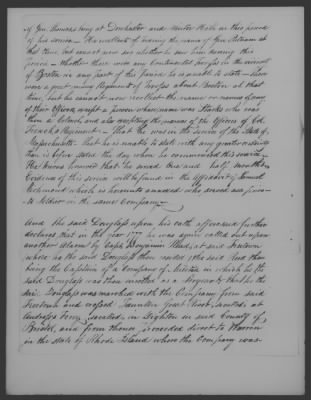 of Gen Thomas being at Dorchester and Winter Hill in this period
of his service — He recollects of hearing the name of Gen Putnam at
that time but cannot now say whether he saw him during this
period — Whether there were any Continental troops in the vicinity
of Boston in any part of this period he is unable to state — there
were a great many Regiments of troops about Boston at that
time, but he cannot now recollect the names or names of any
of their Officers except a person whose name was Starks who was
then a Colonel, and also excepting the names of the Officers of Col
French's Regiment — That he was in the service of the State of
Massachusetts — that he is unable to state with any greater certainty
than is before stated the day when he commenced this service —
He knows however that he served two and half months
Evidence of this service will be found in the affidavit of Samuel
Richmond which is hereunto annexed who served as a
Soldier in the same Company —
And the said Douglass upon his oath aforesaid further
declares that in the year 1777 he was again called out upon
another alarm by Capt Benjamin Read, at said Freetown
where he the said Douglass then resided (the said Read then
being the Captain of a Company of Militia in which he the
said Douglass was then enrolled as a Sergeant) that he the
said Douglass was marched with the Company from said
Freetown and crossed Taunton Great River, so called, at
Andros's Ferry, so called, in Dighton in said County of
Bristol, and from thence proceeded direct to Warren
in the State of Rhode Island where the Company was